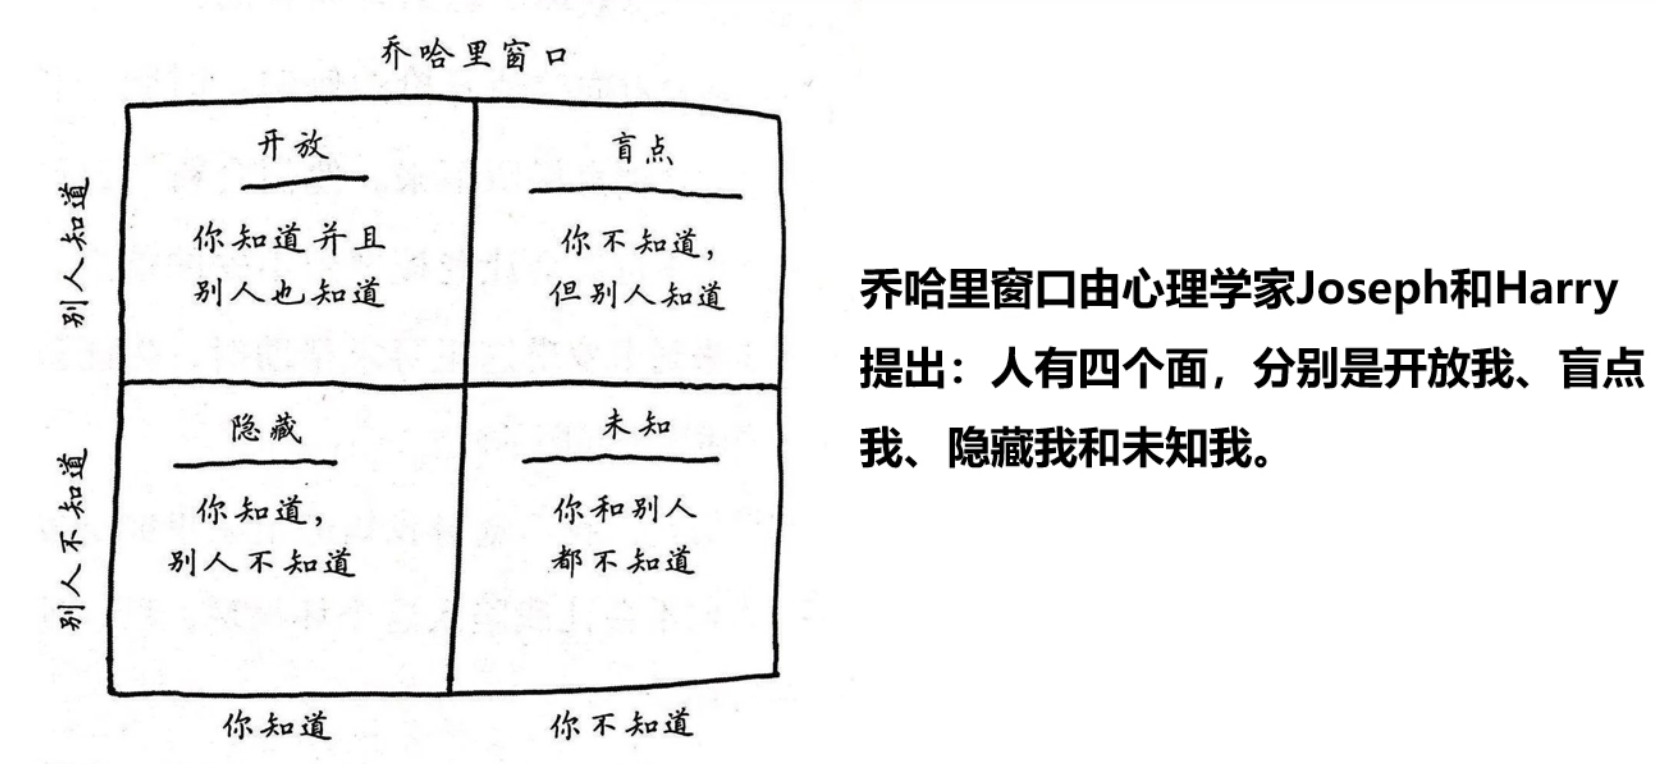 乔哈里窗口
别人知道
开放
你知道并且
别人也知道
盲点
你不知道，
但别人知道
别人不知道
隐藏
你知道，
别人不知道
未知
你和别人
都不知道
你知道
你不知道
乔哈里窗口由心理学家Joseph和Harry
提出：人有四个面，分别是开放我、盲点
我、隐藏我和未知我。